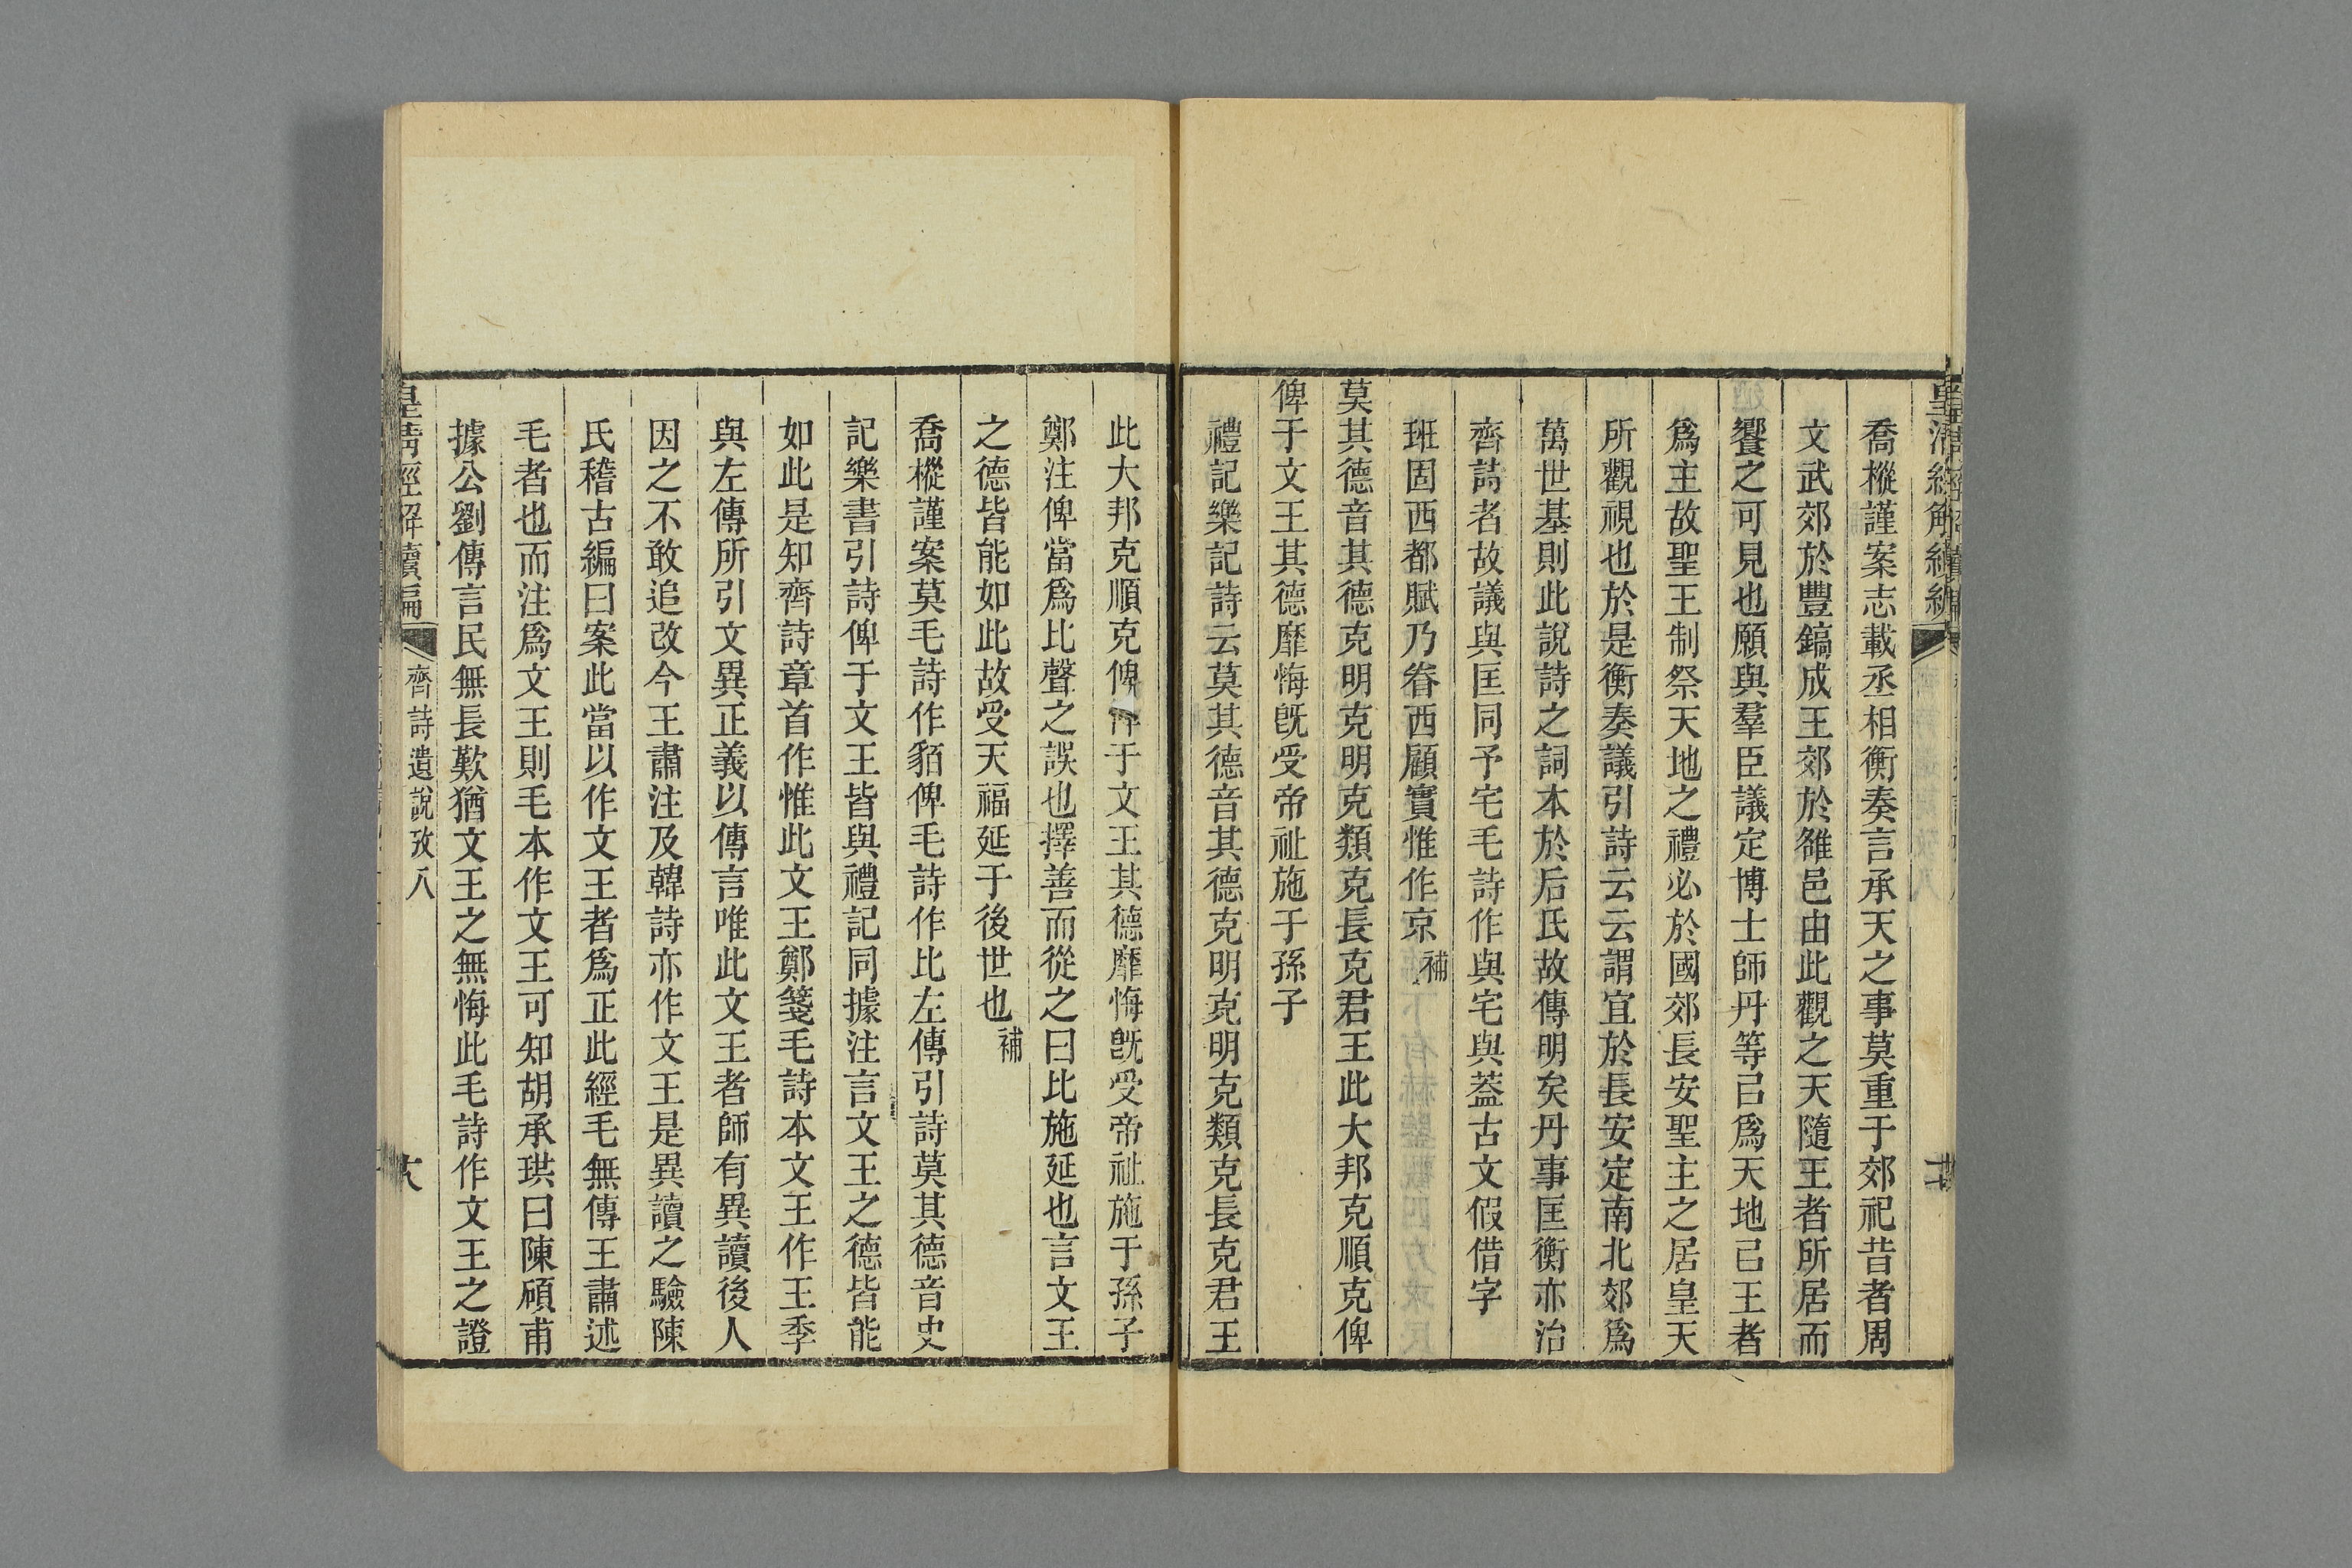 皇清經解續編
喬樅謹案志載丞相衡奏言承天之事莫重于郊祀昔者周
文武郊於豐鎬成王郊於雒邑由此觀之天隨王者所居而
饗之可見也願與羣臣議定博士師丹等已爲天地已王者
爲主故聖王制祭天地之禮必於國郊長安聖主之居皇天
所觀視也於是衡奏議引詩云云謂宜於長安定南北郊爲
萬世基則此說詩之詞本於后氏故傳明矣丹事匡衡亦治
齊詩者故議與匡同予宅毛詩作與宅與葢古文假借字
班固西都賦乃眷西顧實惟作京 補
莫其德音其德克明克明克類克長克君王此大邦克順克俾
俾于文王其德靡悔旣受帝祉施于孫子
禮記樂記詩云莫其德音其德克明克明克類克長克君王
此大邦克順克俾俾于文王其德靡悔旣受帝祉施于孫子
鄭注俾當爲比聲之誤也擇善而從之曰比施延也言文王
之德皆能如此故受天福延于後世也 補
喬樅謹案莫毛詩作貊俾毛詩作比左傳引詩莫其德音史
記樂書引詩俾于文王皆與禮記同據注言文王之德皆能
如此是知齊詩章首作惟此文王鄭箋毛詩本文王作王季
與左傳所引文異正義以傳言唯此文王者師有異讀後人
因之不敢追改今王肅注及韓詩亦作文王是異讀之驗陳
氏稽古編曰案此當以作文王者爲正此經毛無傳王肅述
毛者也而注爲文王則毛本作文王可知胡承珙曰陳碩甫
據公劉傳言民無長歎猶文王之無悔此毛詩作文王之證
皇清經解續編
齊詩遺說攷八